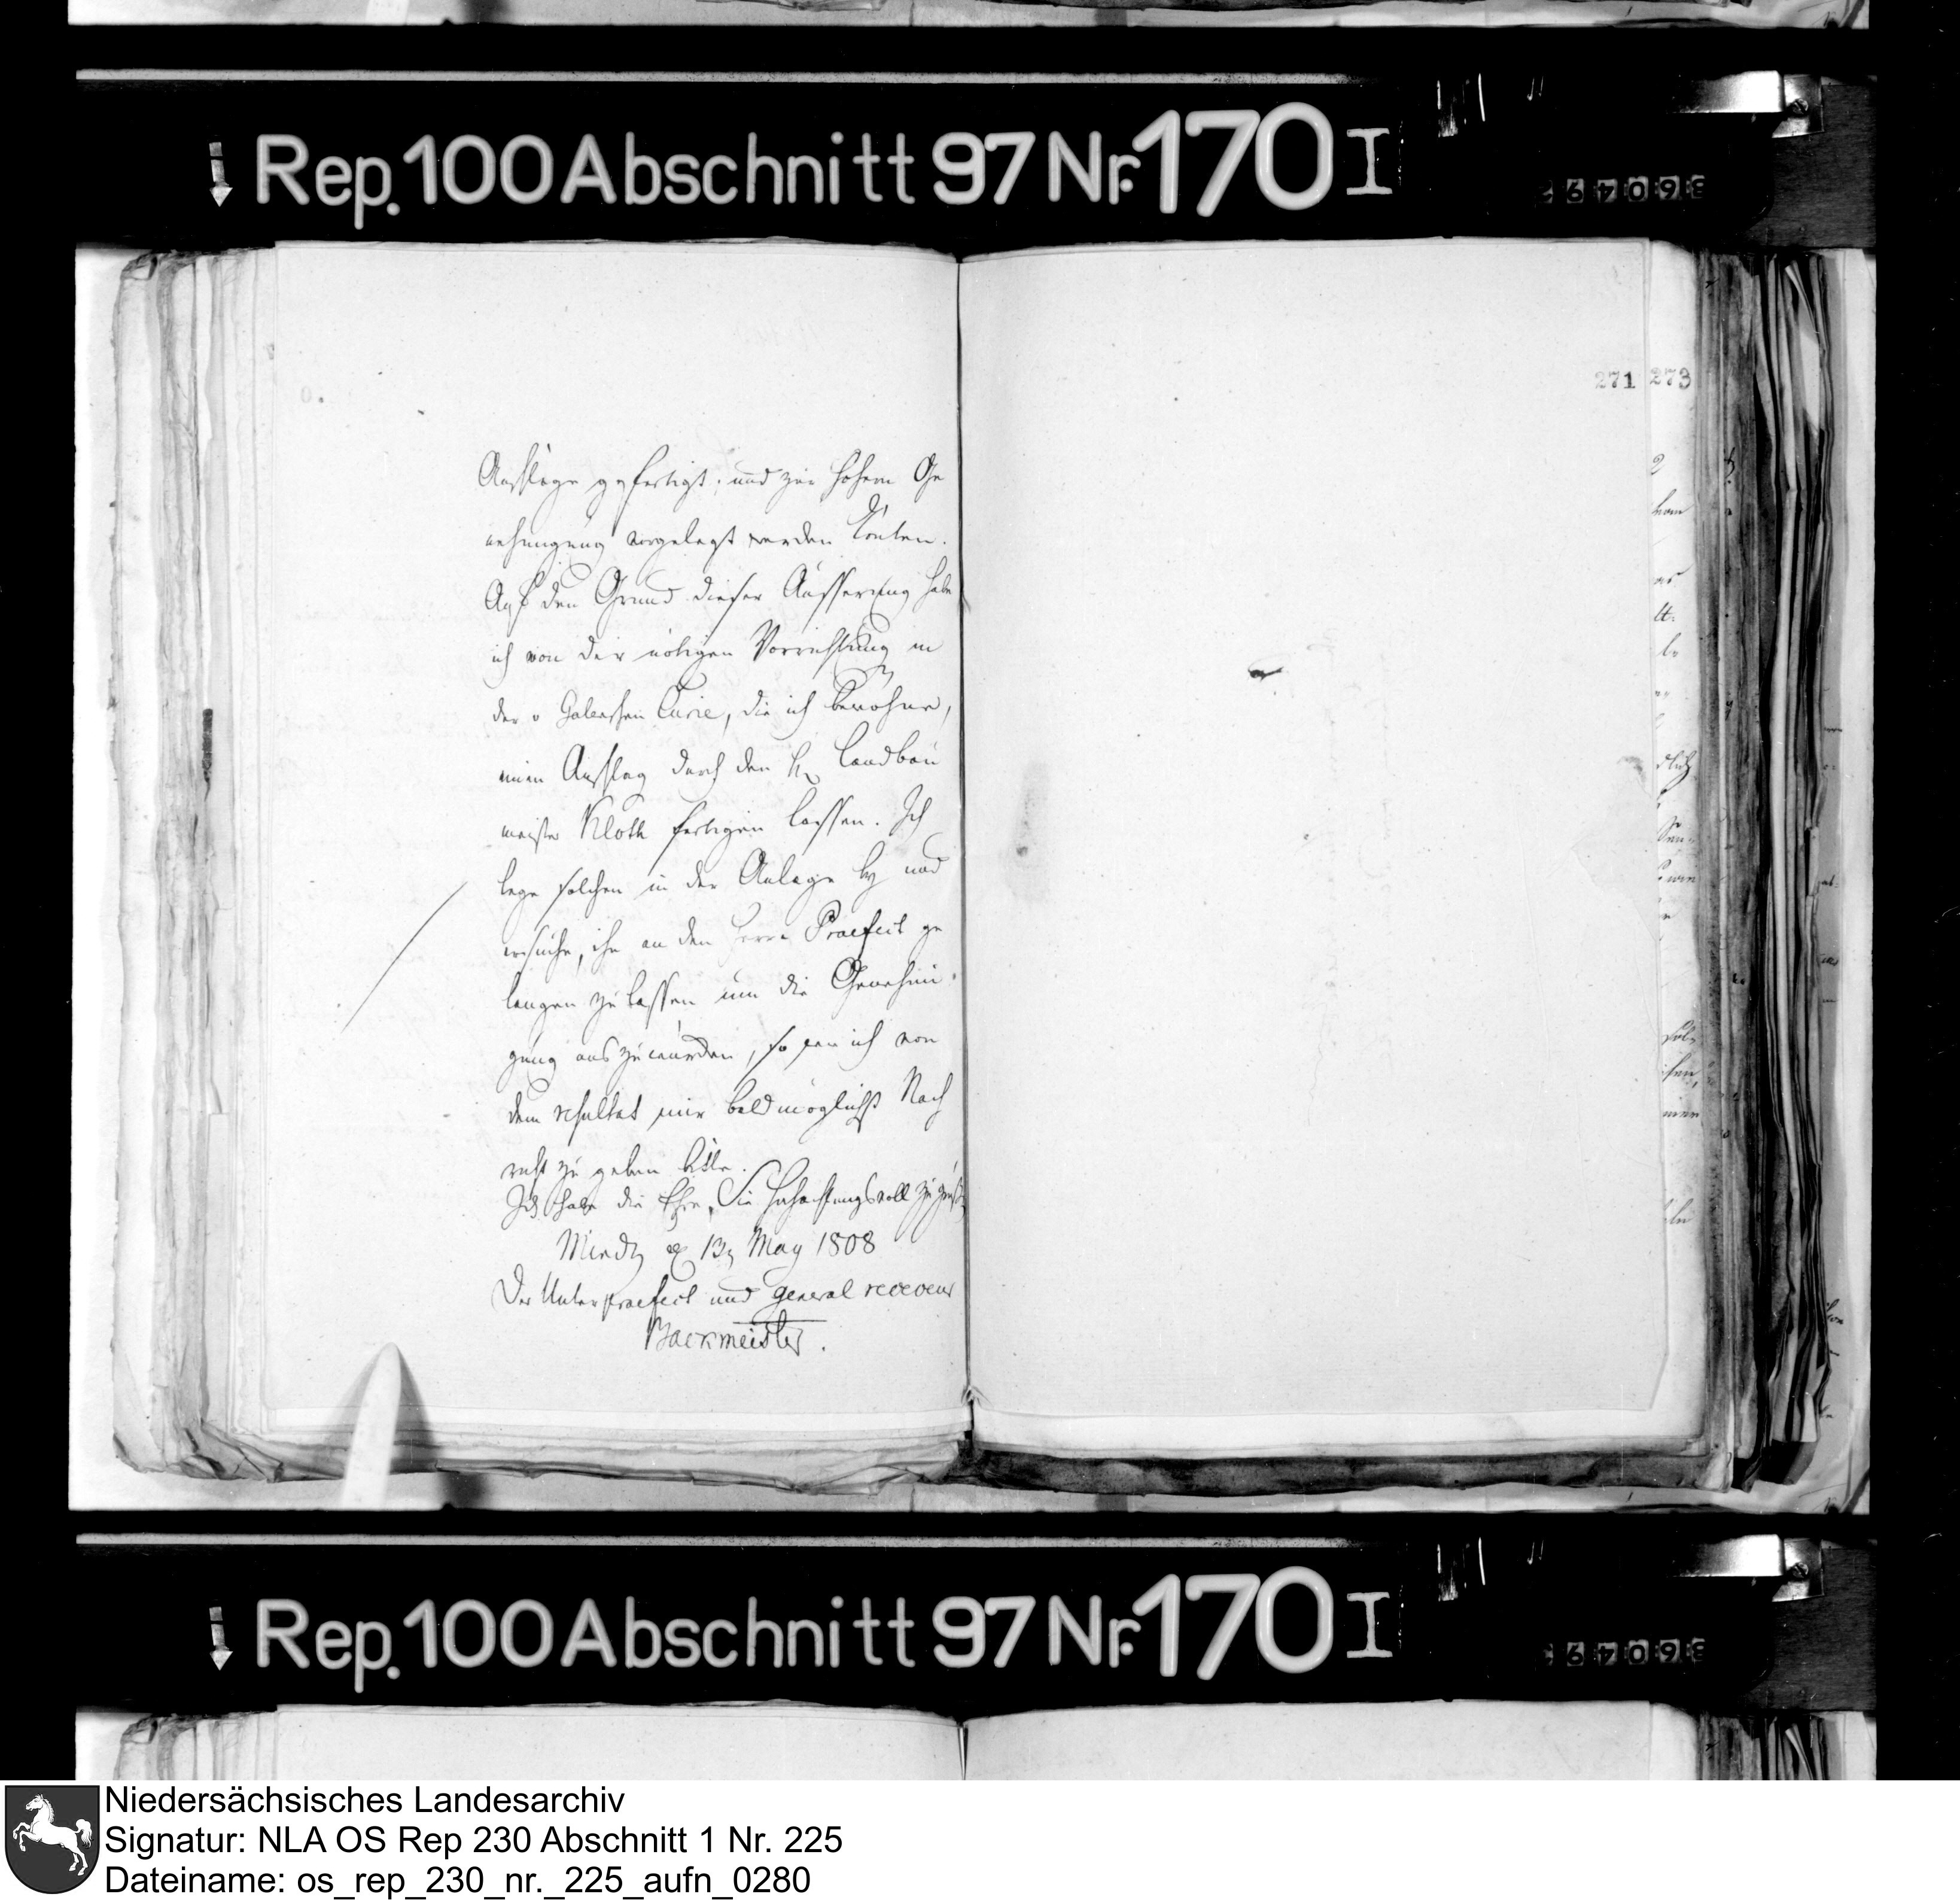 Rep. 100 Abschnitt 97 Nr. 170 I
271 273
Anschläge gefertigt, und zur hohern Ge
nehmigung vorgelegt werden könten.
Auf den Grund dieser Äusserung habe
ich von der nötigen Vorrichtung in
der v Galenschen Curie, die ich bewohne,
einen Anschlag durch den H. Landbau
meister Kloth fertigen lassen. Ich
lege solchen in der Anlage by und
ersuche, ihn an den Herrn Praefect ge
langen zu lassen um die Genehmi-
gung auszuwürken, so wie ich von
dem resultat mir baldmöglichst Nach
richt zu geben bitte.
Ich habe die Ehre, Sie Hochachtungsvoll zu
May 1808
Der Unterpraefect und general receveur
Backmeister.
Rep. 100 Abschnitt 97 Nr. 170 I
Niedersächsisches Landesarchiv
Signatur: NLA OS Rep 230 Abschnitt 1 Nr. 225
Dateiname: os_rep_230_nr._225_aufn_0280